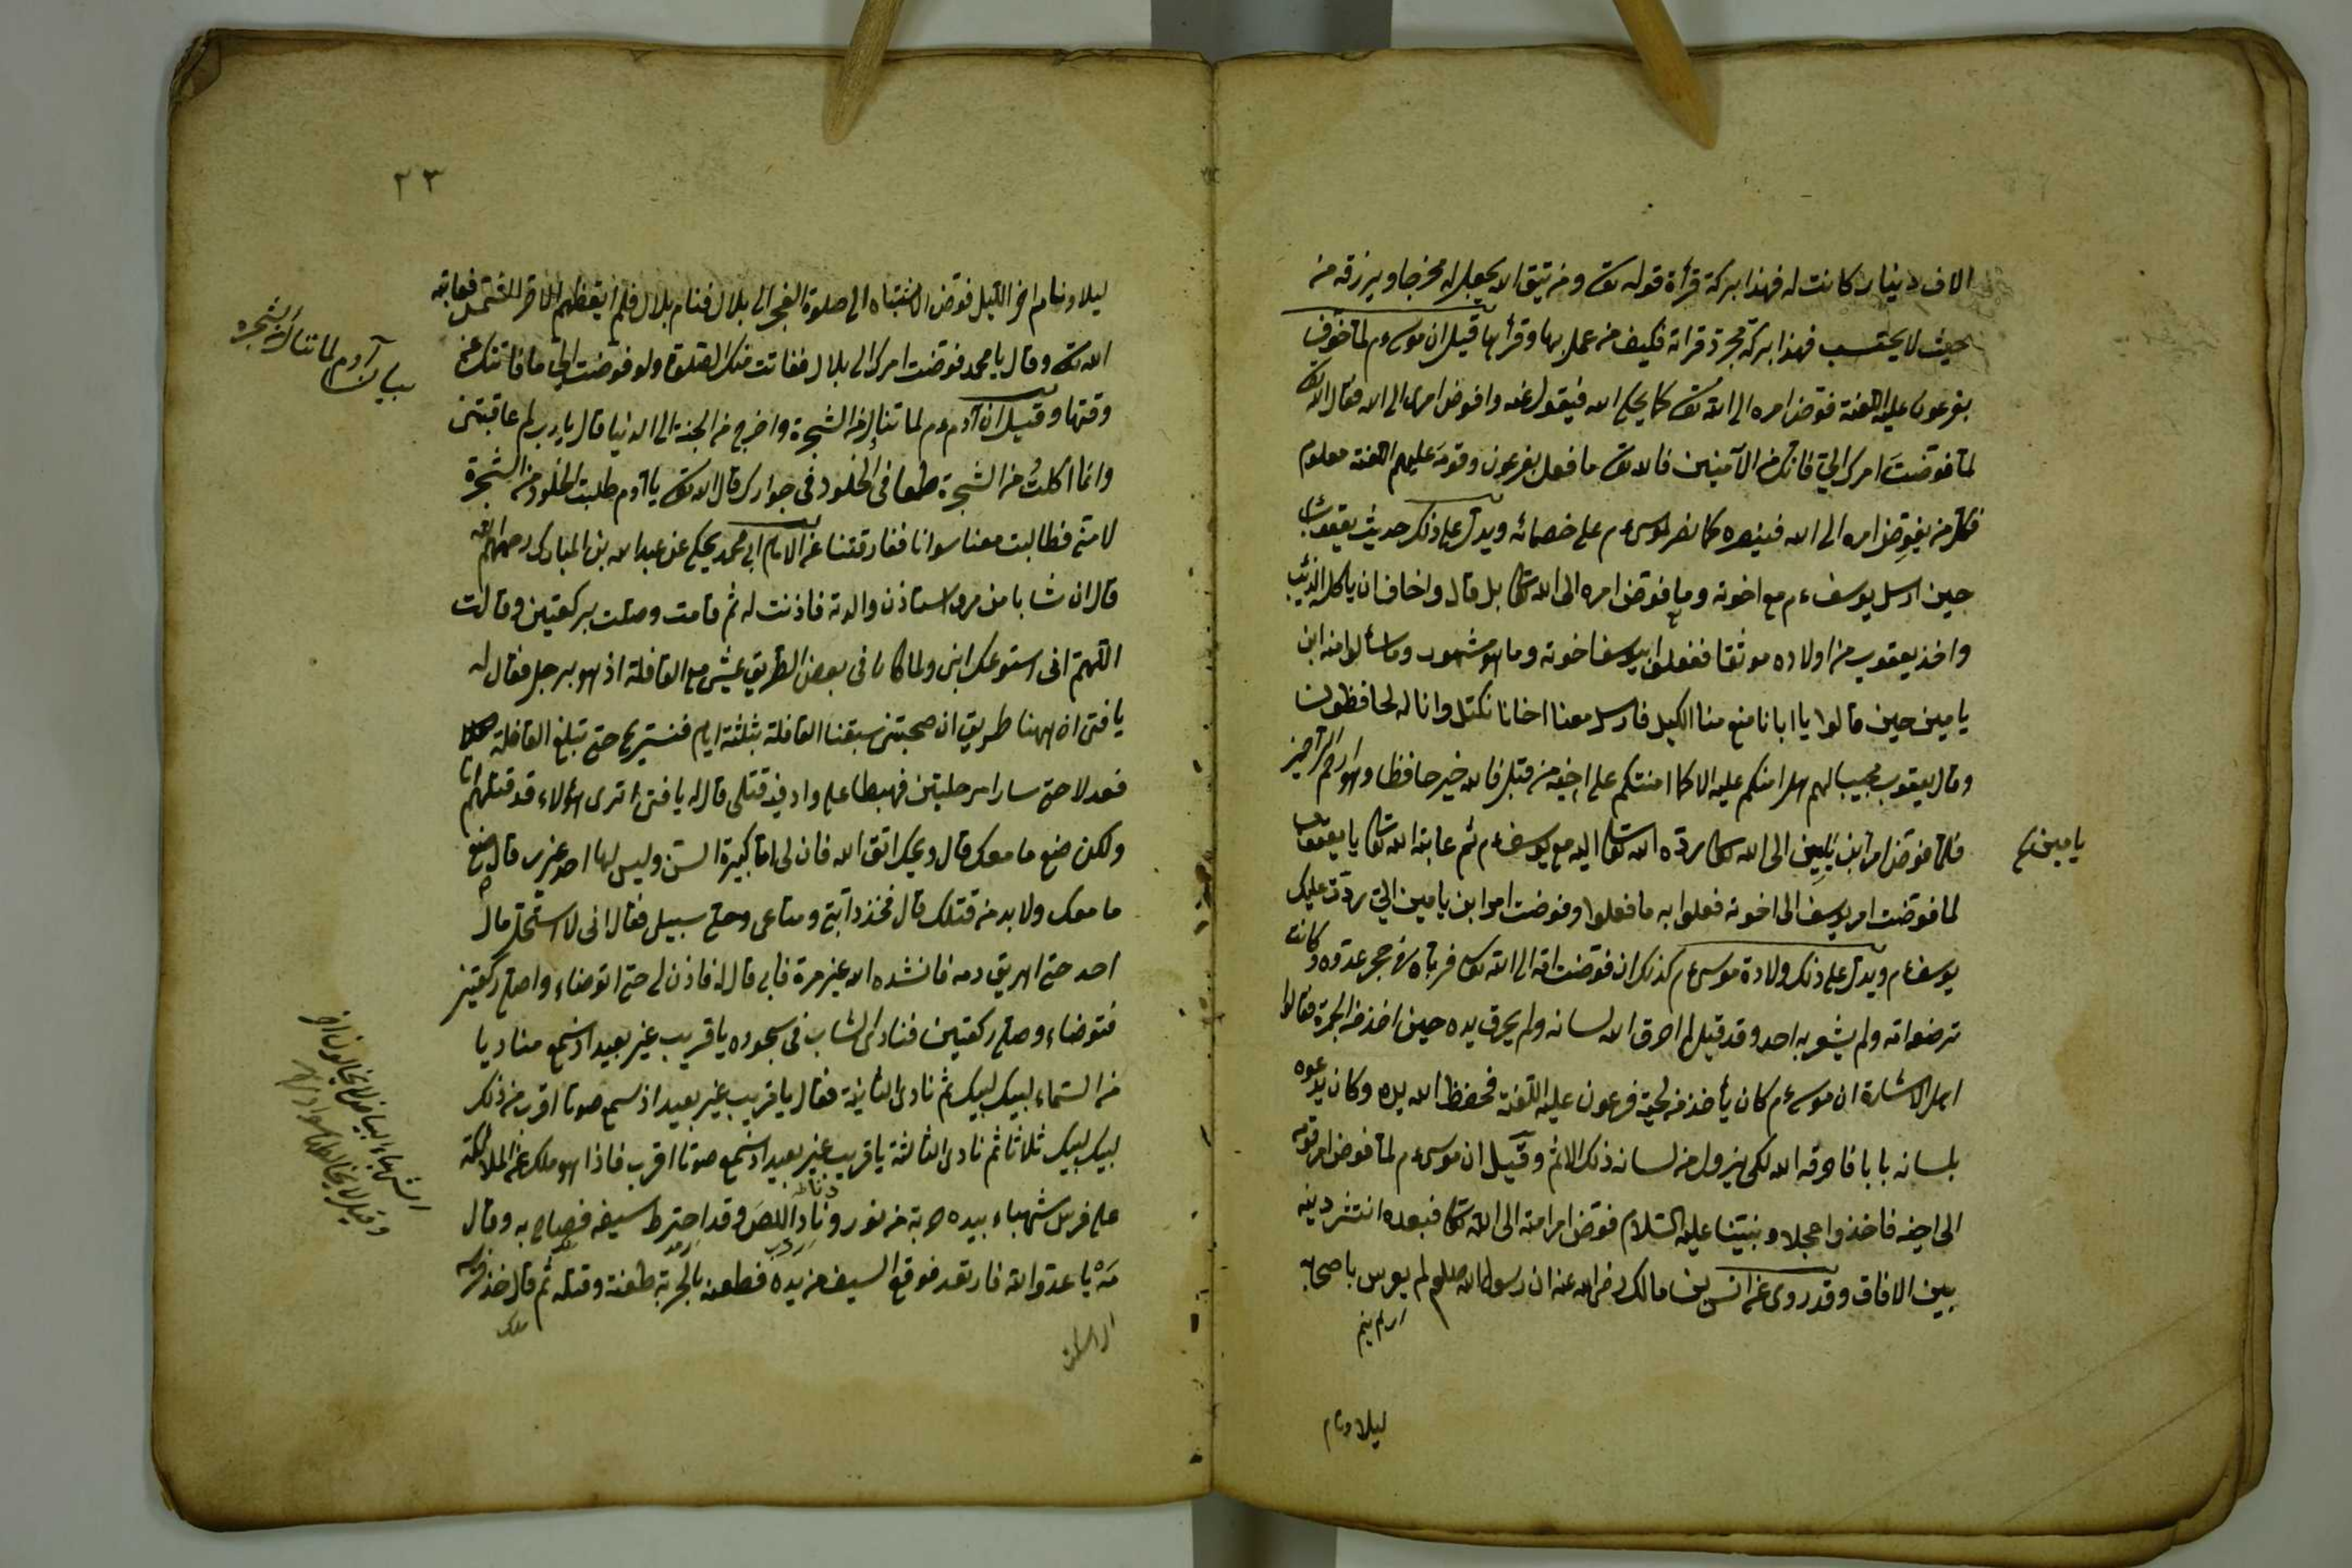 الاف دينار كانت له فهذا ببركة قرأة قوله تع ومن يتق الله يجعل له مخرجا ويرزقه من
حيث لا يحتسب فهذا ببركة مجرد قرائة فكيف من عمل بها وقرأ بها قيل ان موسى ع م لما خوف
بفرعون عليه اللعنة فوض امره الى الله تع كما يحكى الله فيقول عنه وافوض امرى الى الله فقال الله تع
لما فوضت امرك الي فانك من الآمنين فالله تع ما فعل بفرعون وقومه عليهم اللعنة معلوم
فكل من يفوض امره الى الله فينصره كما نصر لموسى ع م على خصمائه ويدل على ذلك حديث يعقوب
حين ارسل يوسف ع م مع اخوته وما فوض امره الى الله تعا بل قال واخاف ان ياكله الذئب
واخذ يعقوب من اولاده موثقا ففعلوا بيوسف اخوته وما هو مشهور وما سألوا منه ابن
يامين حين قالوا يا ابانا منع منا الكيل فارسل معنا اخانا نكتل وانا له لحافظون
وقال يعقوب مجيبا لهم هل امنكم عليه الا كما امنتكم على اخيه من قبل فالله خير حافظا وهو ارحم الراحمين
فلما فوض امر ابن يامين الى الله تعا رده الله تعا اليه مع يوسف ع م ثم عاتبه الله تعا يا يعقوب
يامين صح
لما فوضت امر يوسف الى اخوته فعلوا به ما فعلوا وفوضت امر ابن يامين الي رددت عليك
يوسف ع م ويدل على ذلك ولادة موسى ع م كذلك ان فوضت امه الى الله تع فرباه في حجر عدوه وكانت
ترضعه امه ولم يشعر به احد وقد قيل لم احرق الله لسانه ولم يحرق يده حين اخذ من الجمرة فقالوا
اهل الاشارة ان موسى ع م كان يأخذ من لحية فرعون عليه اللعنة فحفظ الله يده وكان يدعوه
بلسانه بابا فاحرقه الله لكى يزول من لسانه ذلك الاثم وقيل ان موسى ع م لما فوض امر قومه
الى اخيه فاخذوا عجلا ونبينا عليه السلام فوض امر امته الى الله تعا فبعده انتشر دينه
بين الافاق وقد روى عن انس بن مالك رضى الله عنه ان رسول الله صلعم لم يعرس باصحابه
اى لم ينم
ليلا ونام
٢٣
ليلا ونام اخر الليل فوض الانتباه الى صلوة الفجر الى بلال فنام بلال فلم ايقظهم الا حر الشمس فعاتبه
الله تع وقال يا محمد فوضت امرك الى بلال ففاتت منك الصلوة ولو فوضت الي ما فاتتك عن
وقتها وقيل ان آدم ع م لما تناول من الشجرة واخرج من الجنة الى الدنيا قال يا رب لم عاقبتنى
بيان آدم لما تناول من الشجرة
وانما اكلت من الشجرة طمعا فى الخلود فى جوارك قال الله تع يا آدم طلبت الخلود من الشجرة
لا منى فطالبت معنا سوانا ففارقتنا عن الامام ابى محمد يحكى عن عبد الله بن المبارك رحمهم الله
قال ان شابا من مرو استاذن والدته فاذنت له ثم قامت وصلت بركعتين وقالت
اللهم انى استودعك ابنى ولما كان فى بعض الطريق عيشى مع القافلة اذ هو برجل فقال له
يا فتى ان ههنا طريق ان صحبتنى سبقنا القافلة بثلثة ايام فنستريح حتى تبلغ القافلة
فعدلا حتى سارا مرحلتين فهبطا على واد فيه قتلى قال له يا فتى اترى هؤلاء قد قتلهم انا
ولكن ضع ما معك قال ويحك اتق الله فان لى اما كبيرة السن وليس لها احد غيرى قال ضع
ما معك ولا بد من قتلك قال فخذ دابتى ومتاعى وخلى سبيلى فقال انى لا استحل مال
احد حتى اهريق دمه فانشده الله غير مرة فابى قال له فاذن لى حتى اتوضاء واصلى ركعتين
فتوضاء وصلى ركعتين فنادى الشاب فى سجوده يا قريب غير بعيد اذ سمع مناديا
من السماء لبيك لبيك ثم نادى الثانية فقال يا قريب غير بعيد اذ سمع صوتا اقرب من ذلك
لبيك لبيك ثلاثا ثم نادى الثالثة يا قريب غير بعيد اذ سمع صوتا اقرب فاذا هو ملك من الملائكة
على فرس شهباء بيده حربة من نور ونادا اللص وقد احترط سيفه فصاح به وقال
مه يا عدو الله فارتعد فوقع السيف من يده فطعنه بالحربة طعنة وقتله ثم قال خذ فرسه
ملك
الشهباء البياض